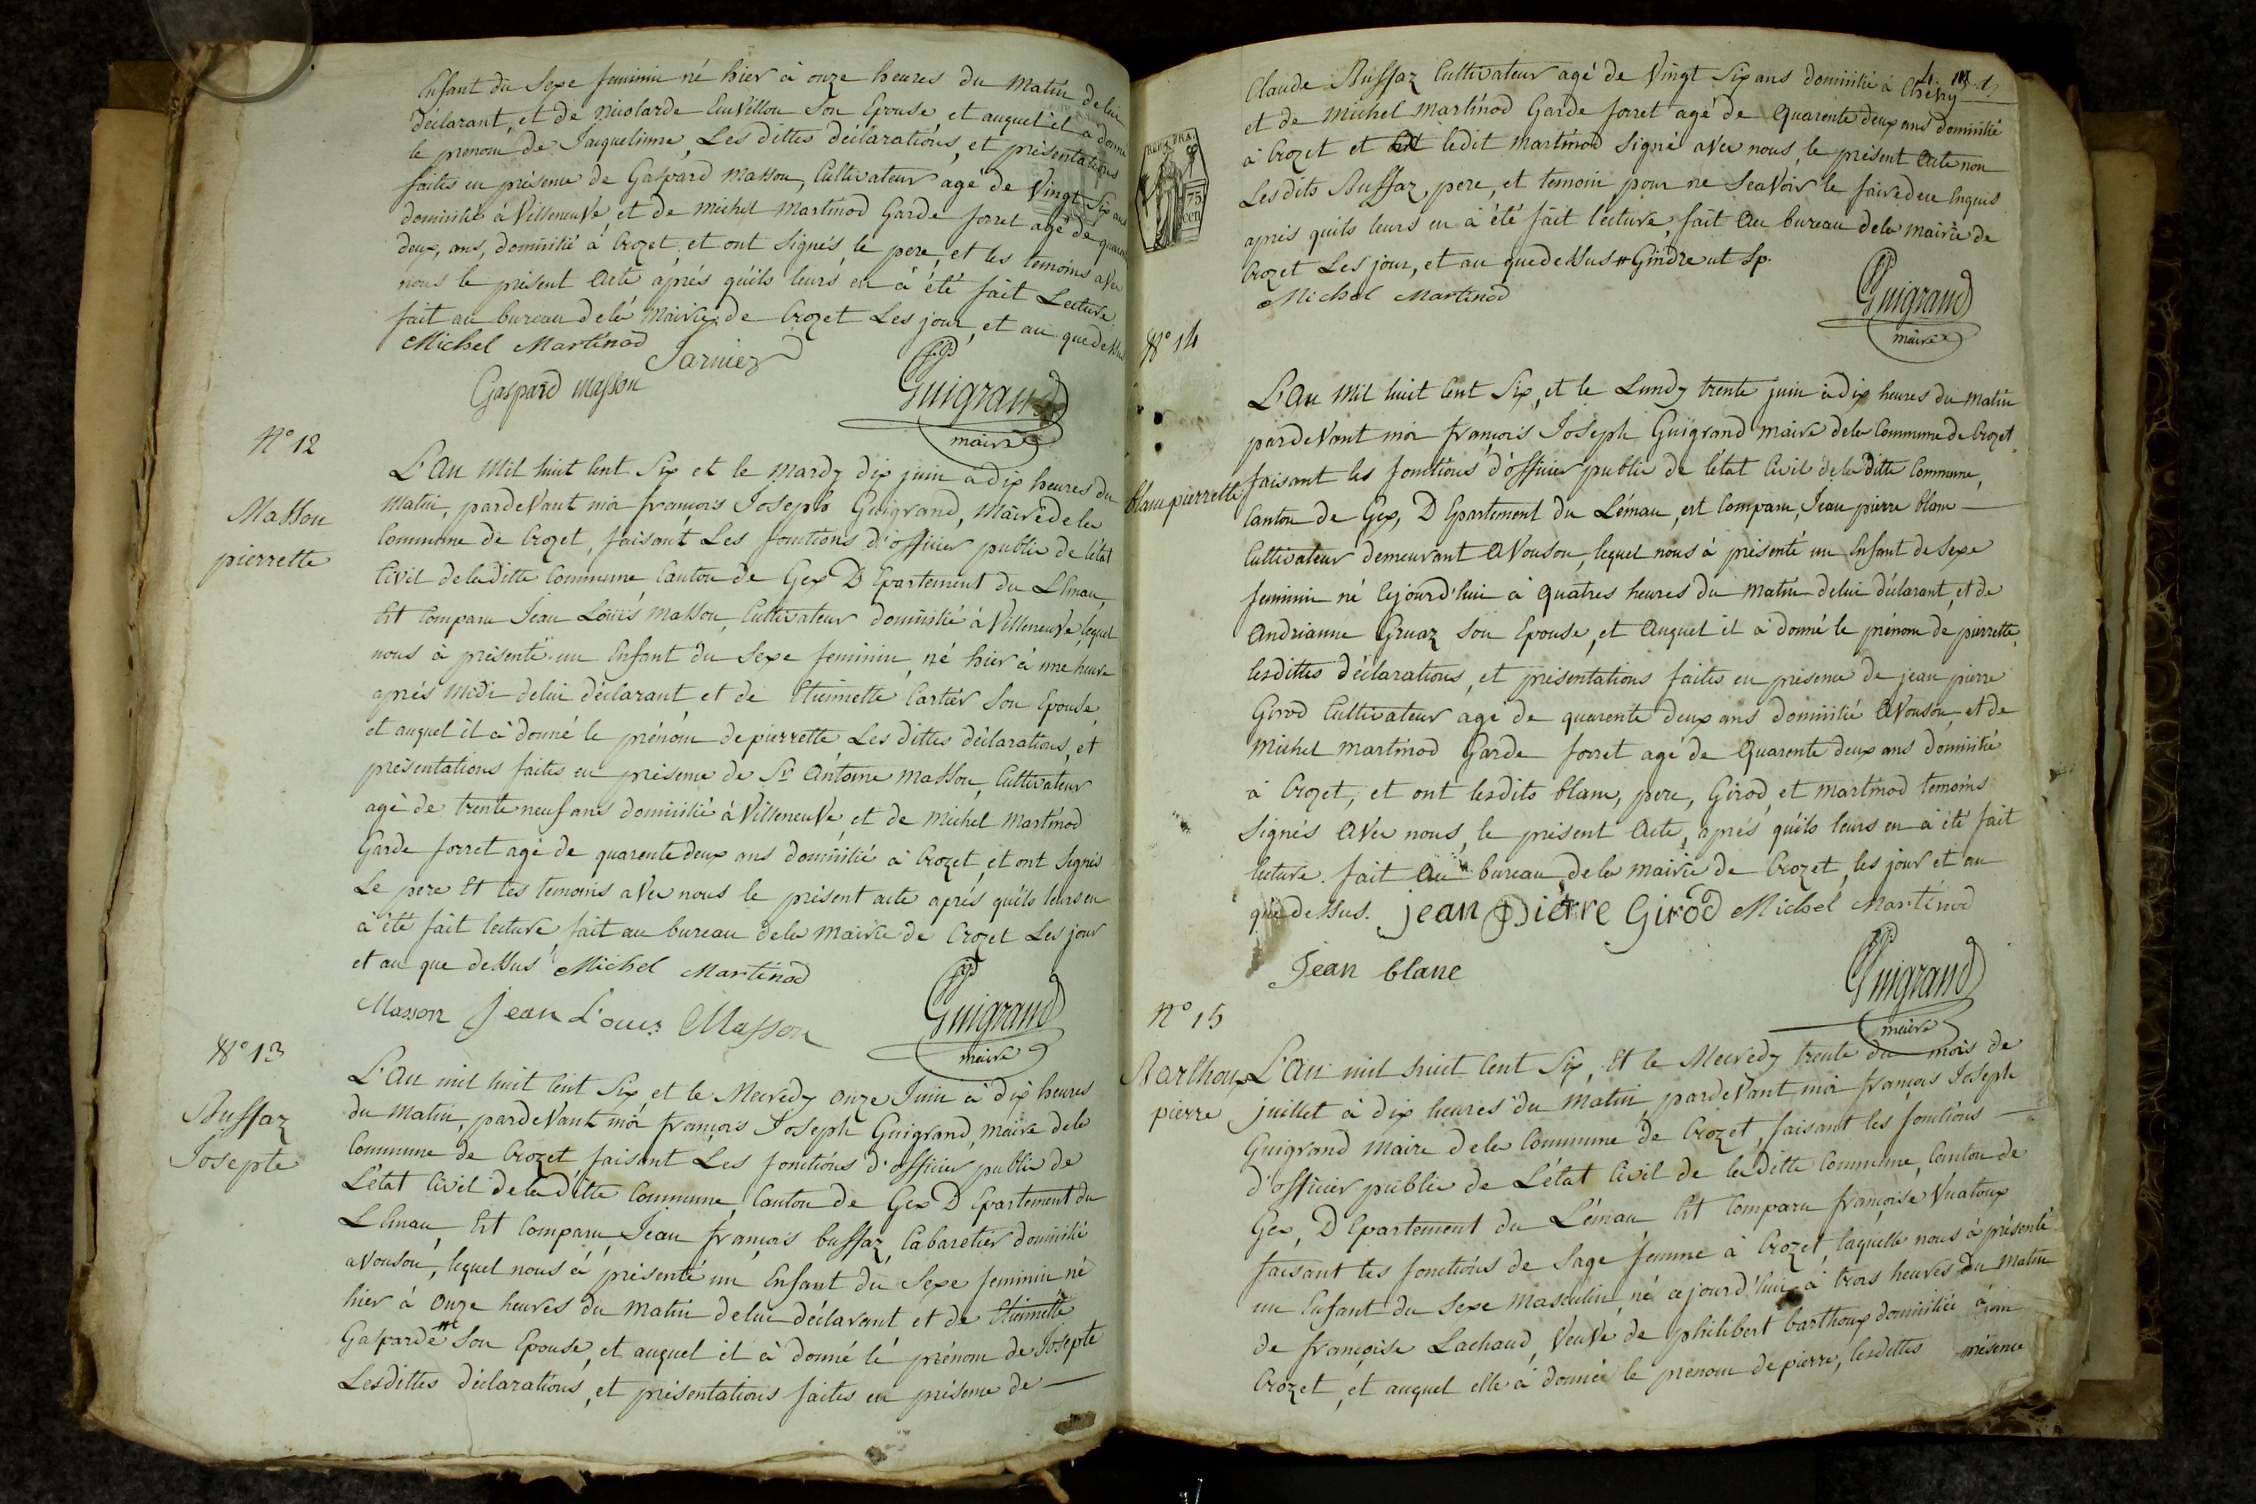 Enfant du Sexe feminin né hier à onze heures du Matin de lui
déclarant, et de nicolarde Son Epouse, et auquel il a donné
le prenom de Jacquelinne, Les dittes déclarations, et présentations
faites en présence de Gaspard Masson, Cultivateur agé de Vingt Six ans
domicilié à VilleneuVe et de Michel Martinod Garde forret agé de quarente
deux, ans, domicilié à Crozet, et ont Signés, le pere, et les temoins aVec
nous le présent Acte aprés qu'ils leurs en à été fait Lecture
fait au bureau de la Mairie de Crozet Les jour, et an que deSsus
Michel Martinod Jarnier
Gaspard Masson
Guigrand
maire
N° 12
Masson
pierrette
L'An Mil huit Cent Six et le Mardy dix juin à dix heures du
Matin, pardeVant moi françois Joseph Guigrand, Maire de la
Commune de Crozet, faisant Les fonctions d'officier public de l'état
Civil de la ditte Commune, Canton de Gex D Epartement du LEman,
Est Comparu Jean Loüis Masson, Cultivateur domicilié à VilleneuVe, lequel
nous à présenté un Enfant du Sexe feminin, né hier à une heure
aprés Midi de lui déclarant et de Etiennette Cartier Son Epouse,
et auquel il à donné le prénom de pierrette Les dittes déclarations, et
présentations faites en présence de Sr Antoine Masson, Cultivateur
agé de trente neuf ans domicilié à VilleneuVe, et de Michel Martinod
Garde forret agé de quarente deux ans domicilié à Crozet, et ont Signés
Le pere Et les temoins aVec nous le présent acte aprés qu'ils leurs en
à été fait lecture, fait au bureau de la Mairie de Crozet Les jour
et an que deSsus Michel Martinod
Masson Jean Louis Masson
Guigrand
maire
N° 13
Buffaz
Josepte
L'An mil huit Cent Six, et le Mecredy onze Juin à dix heures
du Matin, pardeVant moi françois Joseph Guigrand, maire de la
Commune de Crozet faisant Les fonctions d'officier public de
L'état Civil de la ditte Commune, Canton de Gex D Epartement du
LEman, Est Comparu, Jean françois buffaz, Cabaretier domicilié
avouson, lequel nous à présenté un Enfant du Sexe feminin né
hier à onze heures du Matin de lui déclarant et de Etiennette
Gasparde # Son Epouse, et auquel il à donné le prénom de Josepte
Lesdittes déclarations, et présentations faites en présence de
Claude Buffaz Cultivateur agé de Vingt Six ans domicilié à Chevry
et de Michel Martinod Garde forret agé de Quarente deux ans domicilié
à Crozet et ledit Martinod Signé aVec nous, le présent Acte non
Lesdits Buffaz, pere, et temoin pour ne SeaVoir le faire de ce Enquis
aprés quils leurs en à été fait lecture, fait Au bureau de la mairie de
Crozet Les jour, et an que deSsus # Gindre ut Sp.
Michel Martinod
REPU. FRA.
75
cen
Guigrand
maire
N° 14
blanc pierrette
L'An Mil huit Cent Six, et le Lundy trente juin à dix heures du matin
pardeVant moi françois Joseph Guigrand maire de la Commune de Crozet
faisant les fonctions d'officier public de l'état Civil de la ditte Commune,
Canton de Gex, D Epartement du Léman, est Comparu, Jean pierre blanc
Cultivateur demeurant AVouson, lequel nous à présenté un Enfant de Sexe
feminin né Cejourd'hui à Quatres heures du Matin de lui déclarant, et de
Andrianne Gruaz Son Epouse, et Auquel il à donné le prénom de pierrette,
lesdittes déclarations, et présentations faites en présence de jean pierre
Girod Cultivateur agé de quarente deux ans domicilié AVouson, et de
Michel Martinod Garde forret agé de Quarente deux ans domicilié
à Crozet, et ont lesdits blanc, pere, Girod, et Martinod temoins
Signés AVec nous, le présent Acte, aprés qu'ils leurs en à été fait
lecture. fait Au bureau de la mairie de Crozet, les jour et an
que deSsus. jean pierre Girod Michel Martinod
Jean blanc
Guigrand
maire
N° 15
Barthoux
pierre
L'An mil huit Cent Six, Et le Mecredy trente du mois de
juillet à dix heures du Matin, pardeVant moi françois Joseph
Guigrand Maire de la Commune de Crozet, faisant les fonctions
d'officier public de L'état Civil de la ditte Commune, Canton de
Gex, D Epartement du Léman Est Comparu françoise Vuatoux
faisant les fonctions de Sage femme à Crozet, laquelle nous à présenté
un Enfant du Sexe Masculin, né cejourd'hui à trois heures du Matin
de françoise Lachaud, VeuVe de philibert barthoux domiciliée à
Crozet, et auquel elle à donnée le prénom de pierre, lesdittes présence